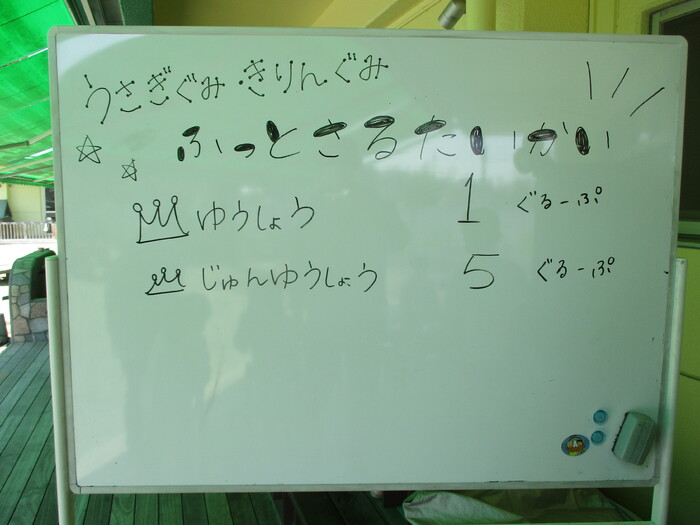 うさぎぐみ きりんぐみ
ふっとさるたいかい
ゆうしょう 1 ぐるーぷ
じゅんゆうしょう 5 ぐるーぷ